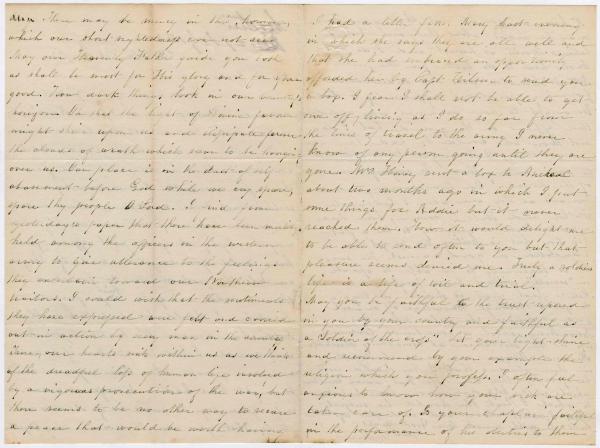 There may be mercy in this, however,
which our short sightedness can not see
May our Heavenly Father guide you both
as shall be most for His glory and for your
good. How dark things look in our country's
horizon! Oh that the light of Divine favor
might shine upon us and dissipate forever
the clouds of wrath which seem to be hanging
over us. Our place is in the dust of self
abasement before God while we cry spare,
spare thy people O Lord. I find from
yesterday's paper that there have been meetings
held among the officers in the western
army to give utterance to the feelings
they entertain toward our Northern
traitors. I could wish that the sentiments
they have expressed were felt and carried
out in action by every man in the service
our hearts sink within us as we think
of the dreadful loss of human life involved
by a vigorous prosecution of the war, but
there seems to be no other way to secure
a peace that would be worth having
I had a letter from Mary last evening
in which she says they are all well and
that she had improved an opportunity
afforded her by Capt. to send you
a box. I fear I shall not be able to get
one off, living as I do so far from
the lines of travel to the army I never
know of any person going until they are
gone. Mrs sent a box to
about two months ago in which I put
some things for Addie but it never
reached them. How it would delight me
to be able to send often to you but that
pleasure seems denied me. Truly a soldiers
life is a life of toil and trial.
May you be faithful to the trust reposed
in you by your country and faithful as
a "Soldier of the cross" let your light shine
and recommend by your example the
religion which you profess. I often feel
anxious to know how your sick are
taken care of. Is your chaplain faithful
in the performance of his duties to them